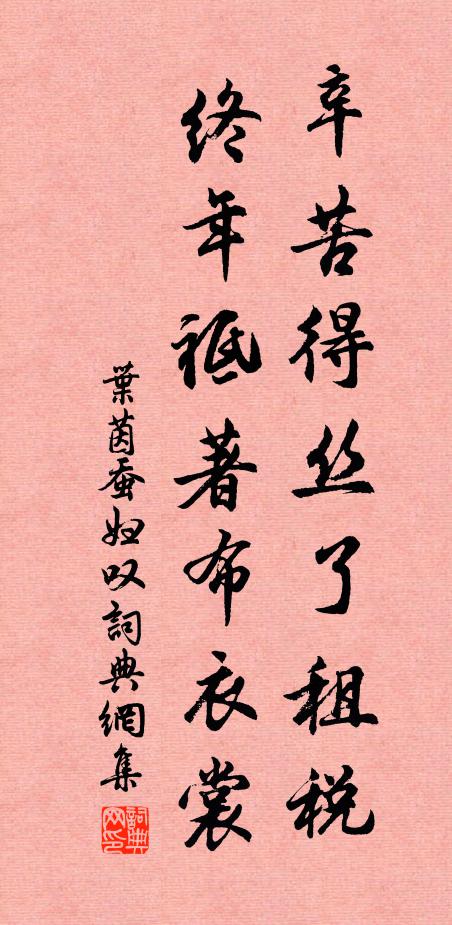 辛苦得丝了租税
终年祗著布衣裳
葉茵蚕妇叹詞典網集
詞典网印